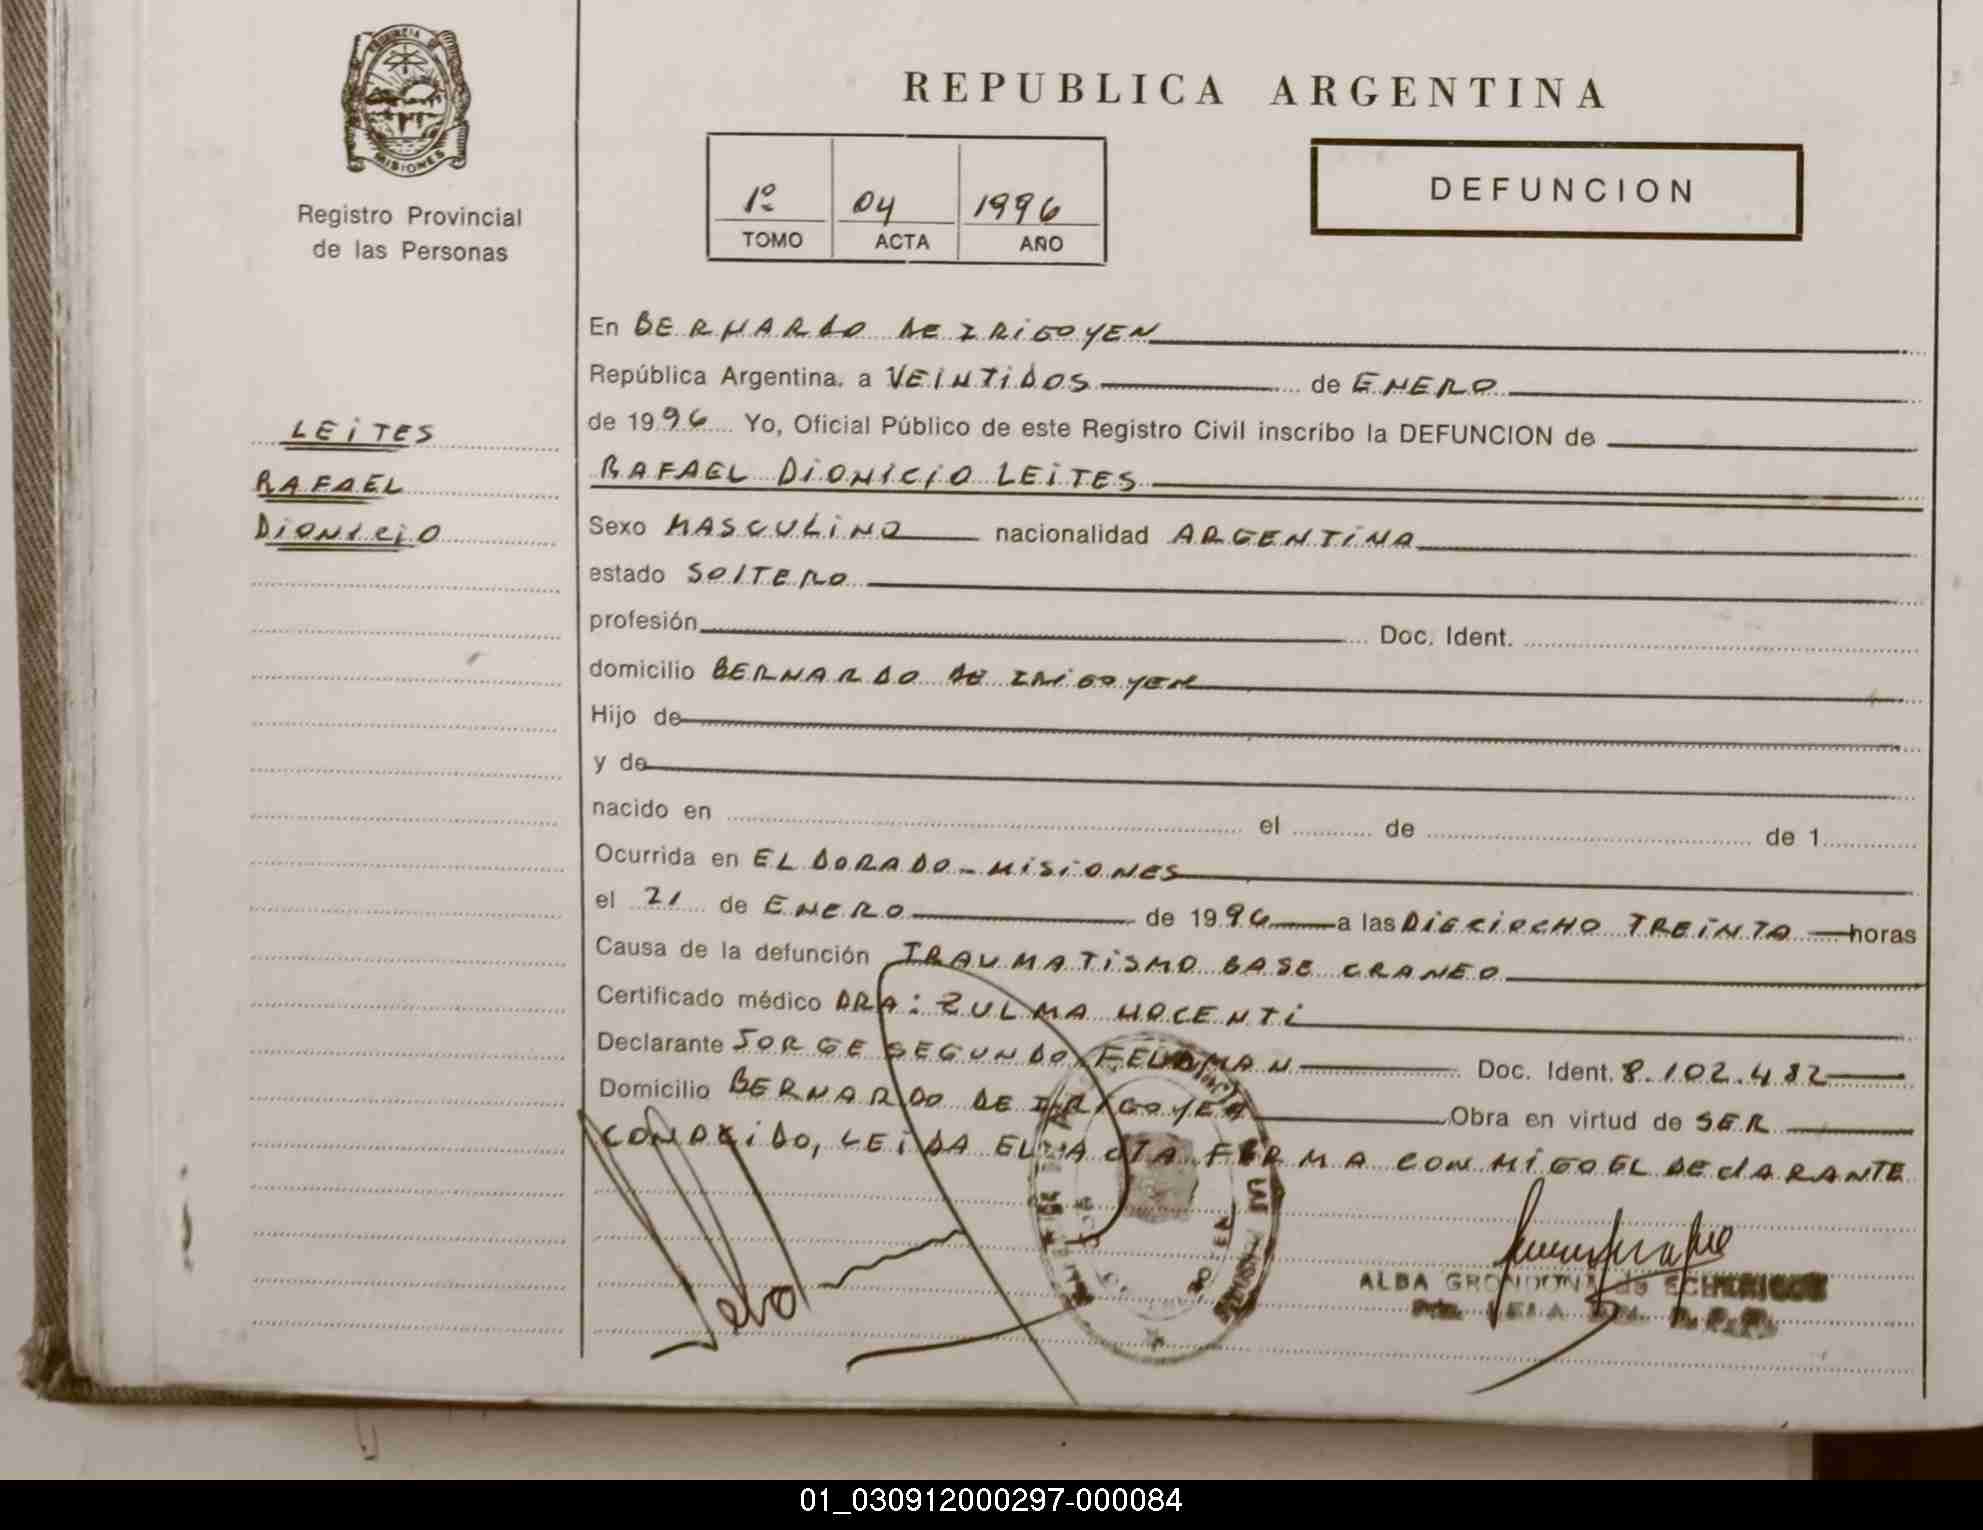 PROVINCIA DE
MISIONES
Registro Provincial
de las Personas
REPUBLICA ARGENTINA
1º 04 1996
TOMO ACTA AÑO
DEFUNCION
LEITES
RAFAEL
DIONICIO
En BERNARDO DE IRIGOYEN
República Argentina, a VEINTIDOS de ENERO
de 1996 Yo, Oficial Público de este Registro Civil inscribo la DEFUNCION de
RAFAEL DIONICIO LEITES
Sexo MASCULINO nacionalidad ARGENTINA
estado SOLTERO
profesión Doc. Ident.
domicilio BERNARDO DE IRIGOYEN
Hijo de
y de
nacido en el de de 1
Ocurrida en EL DORADO - MISIONES
el 21 de ENERO de 1996 a las DIECIOCHO TREINTA horas
Causa de la defunción TRAUMATISMO BASE CRANEO
Certificado médico DRA: ZULMA HOCENTI
Declarante JORGE SEGUNDO FELDMAN Doc. Ident. 8.102.482
Domicilio BERNARDO DE IRIGOYEN Obra en virtud de SER
CONOCIDO, LEIDA EL ACTA FIRMA CONMIGO EL DEClARANTE
ALBA GRONDONA de
01_030912000297-000084